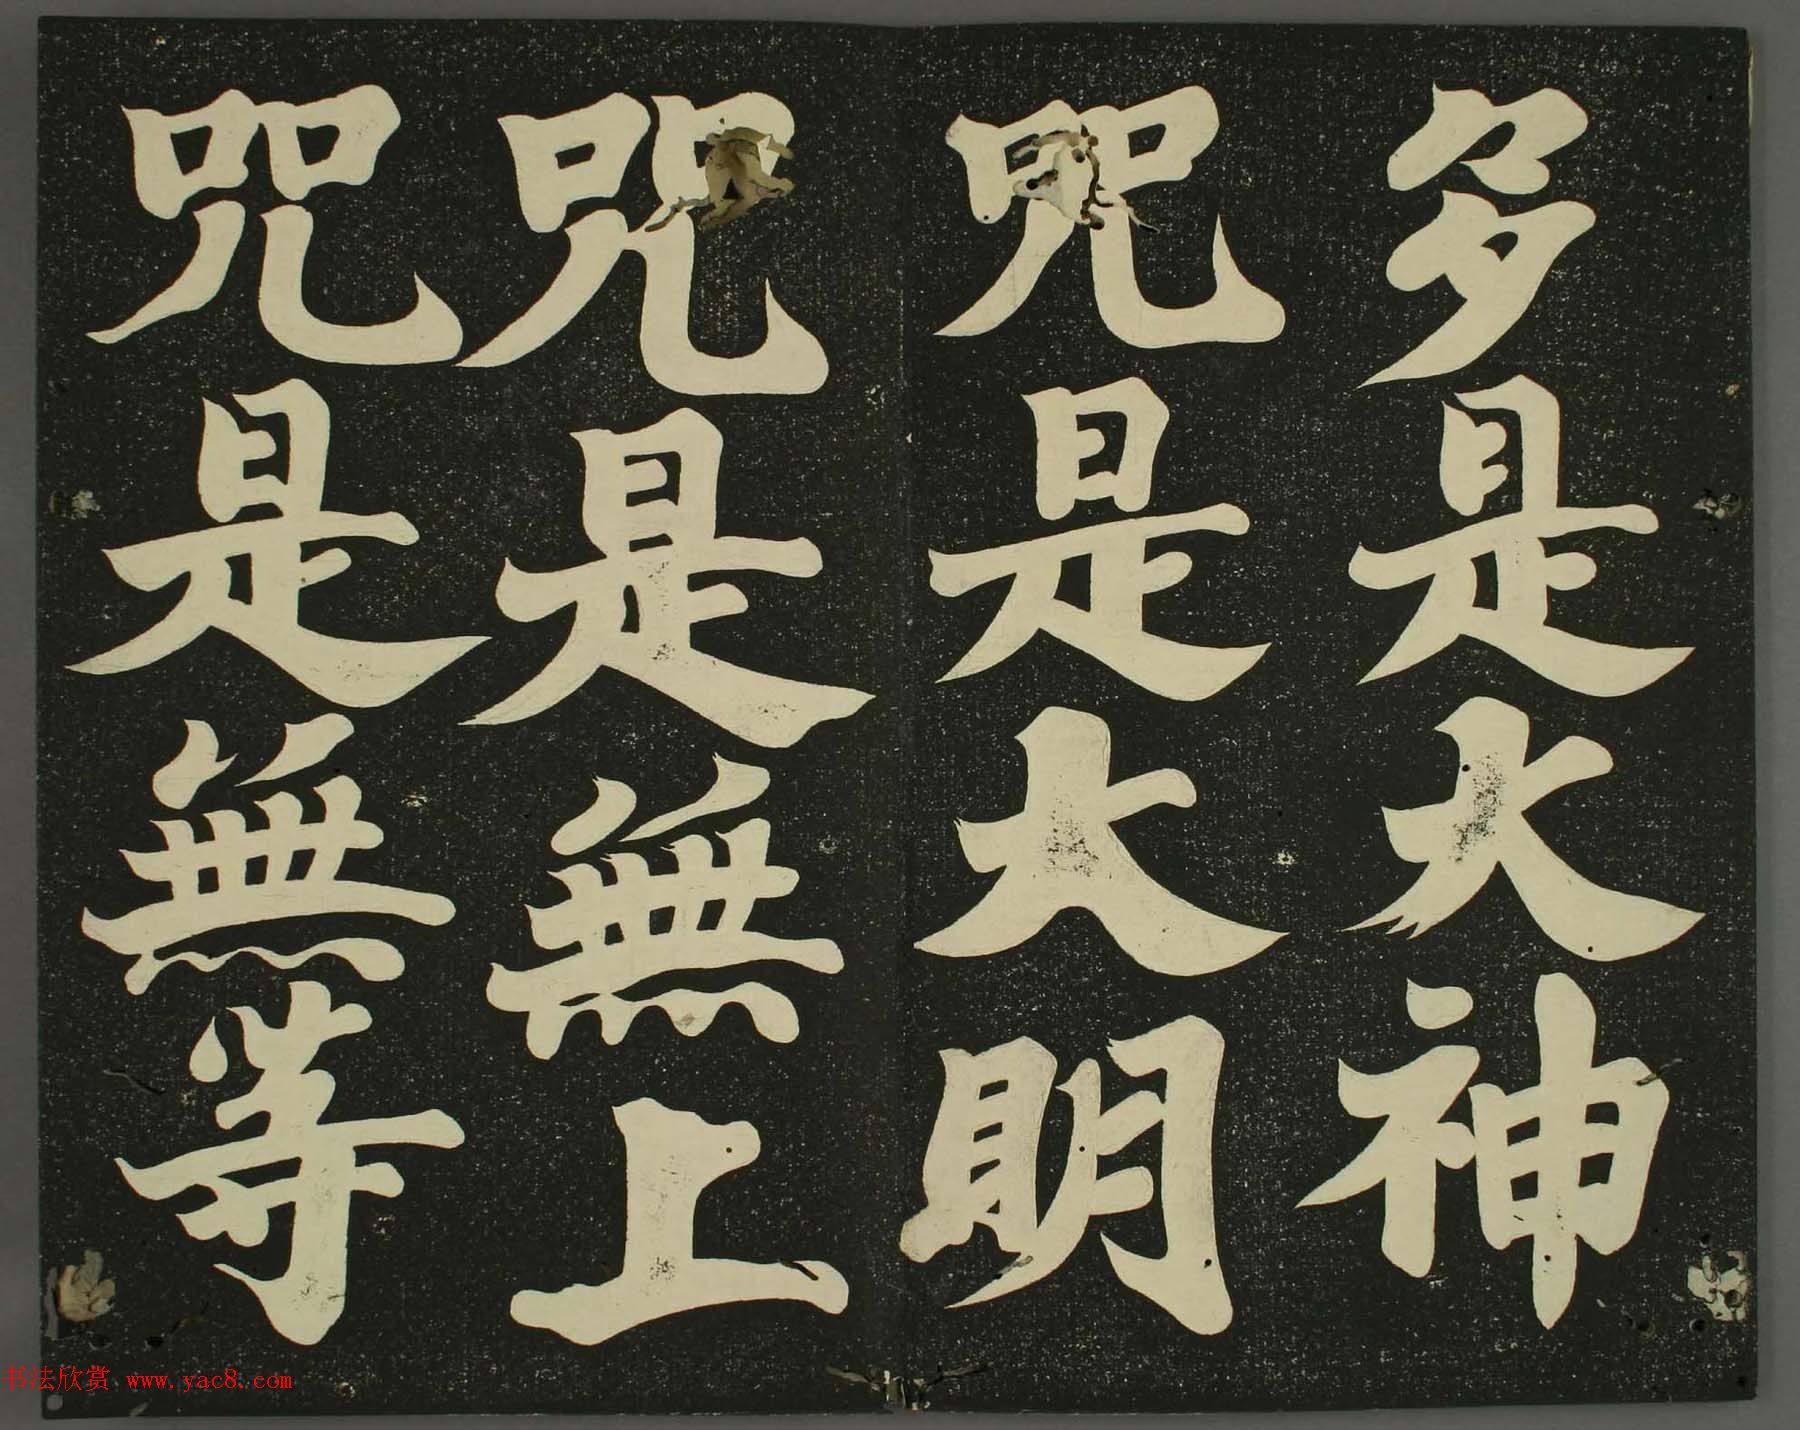 多是大神
咒是大明
咒是無上
咒是無等
书法欣赏 www.yac8.com